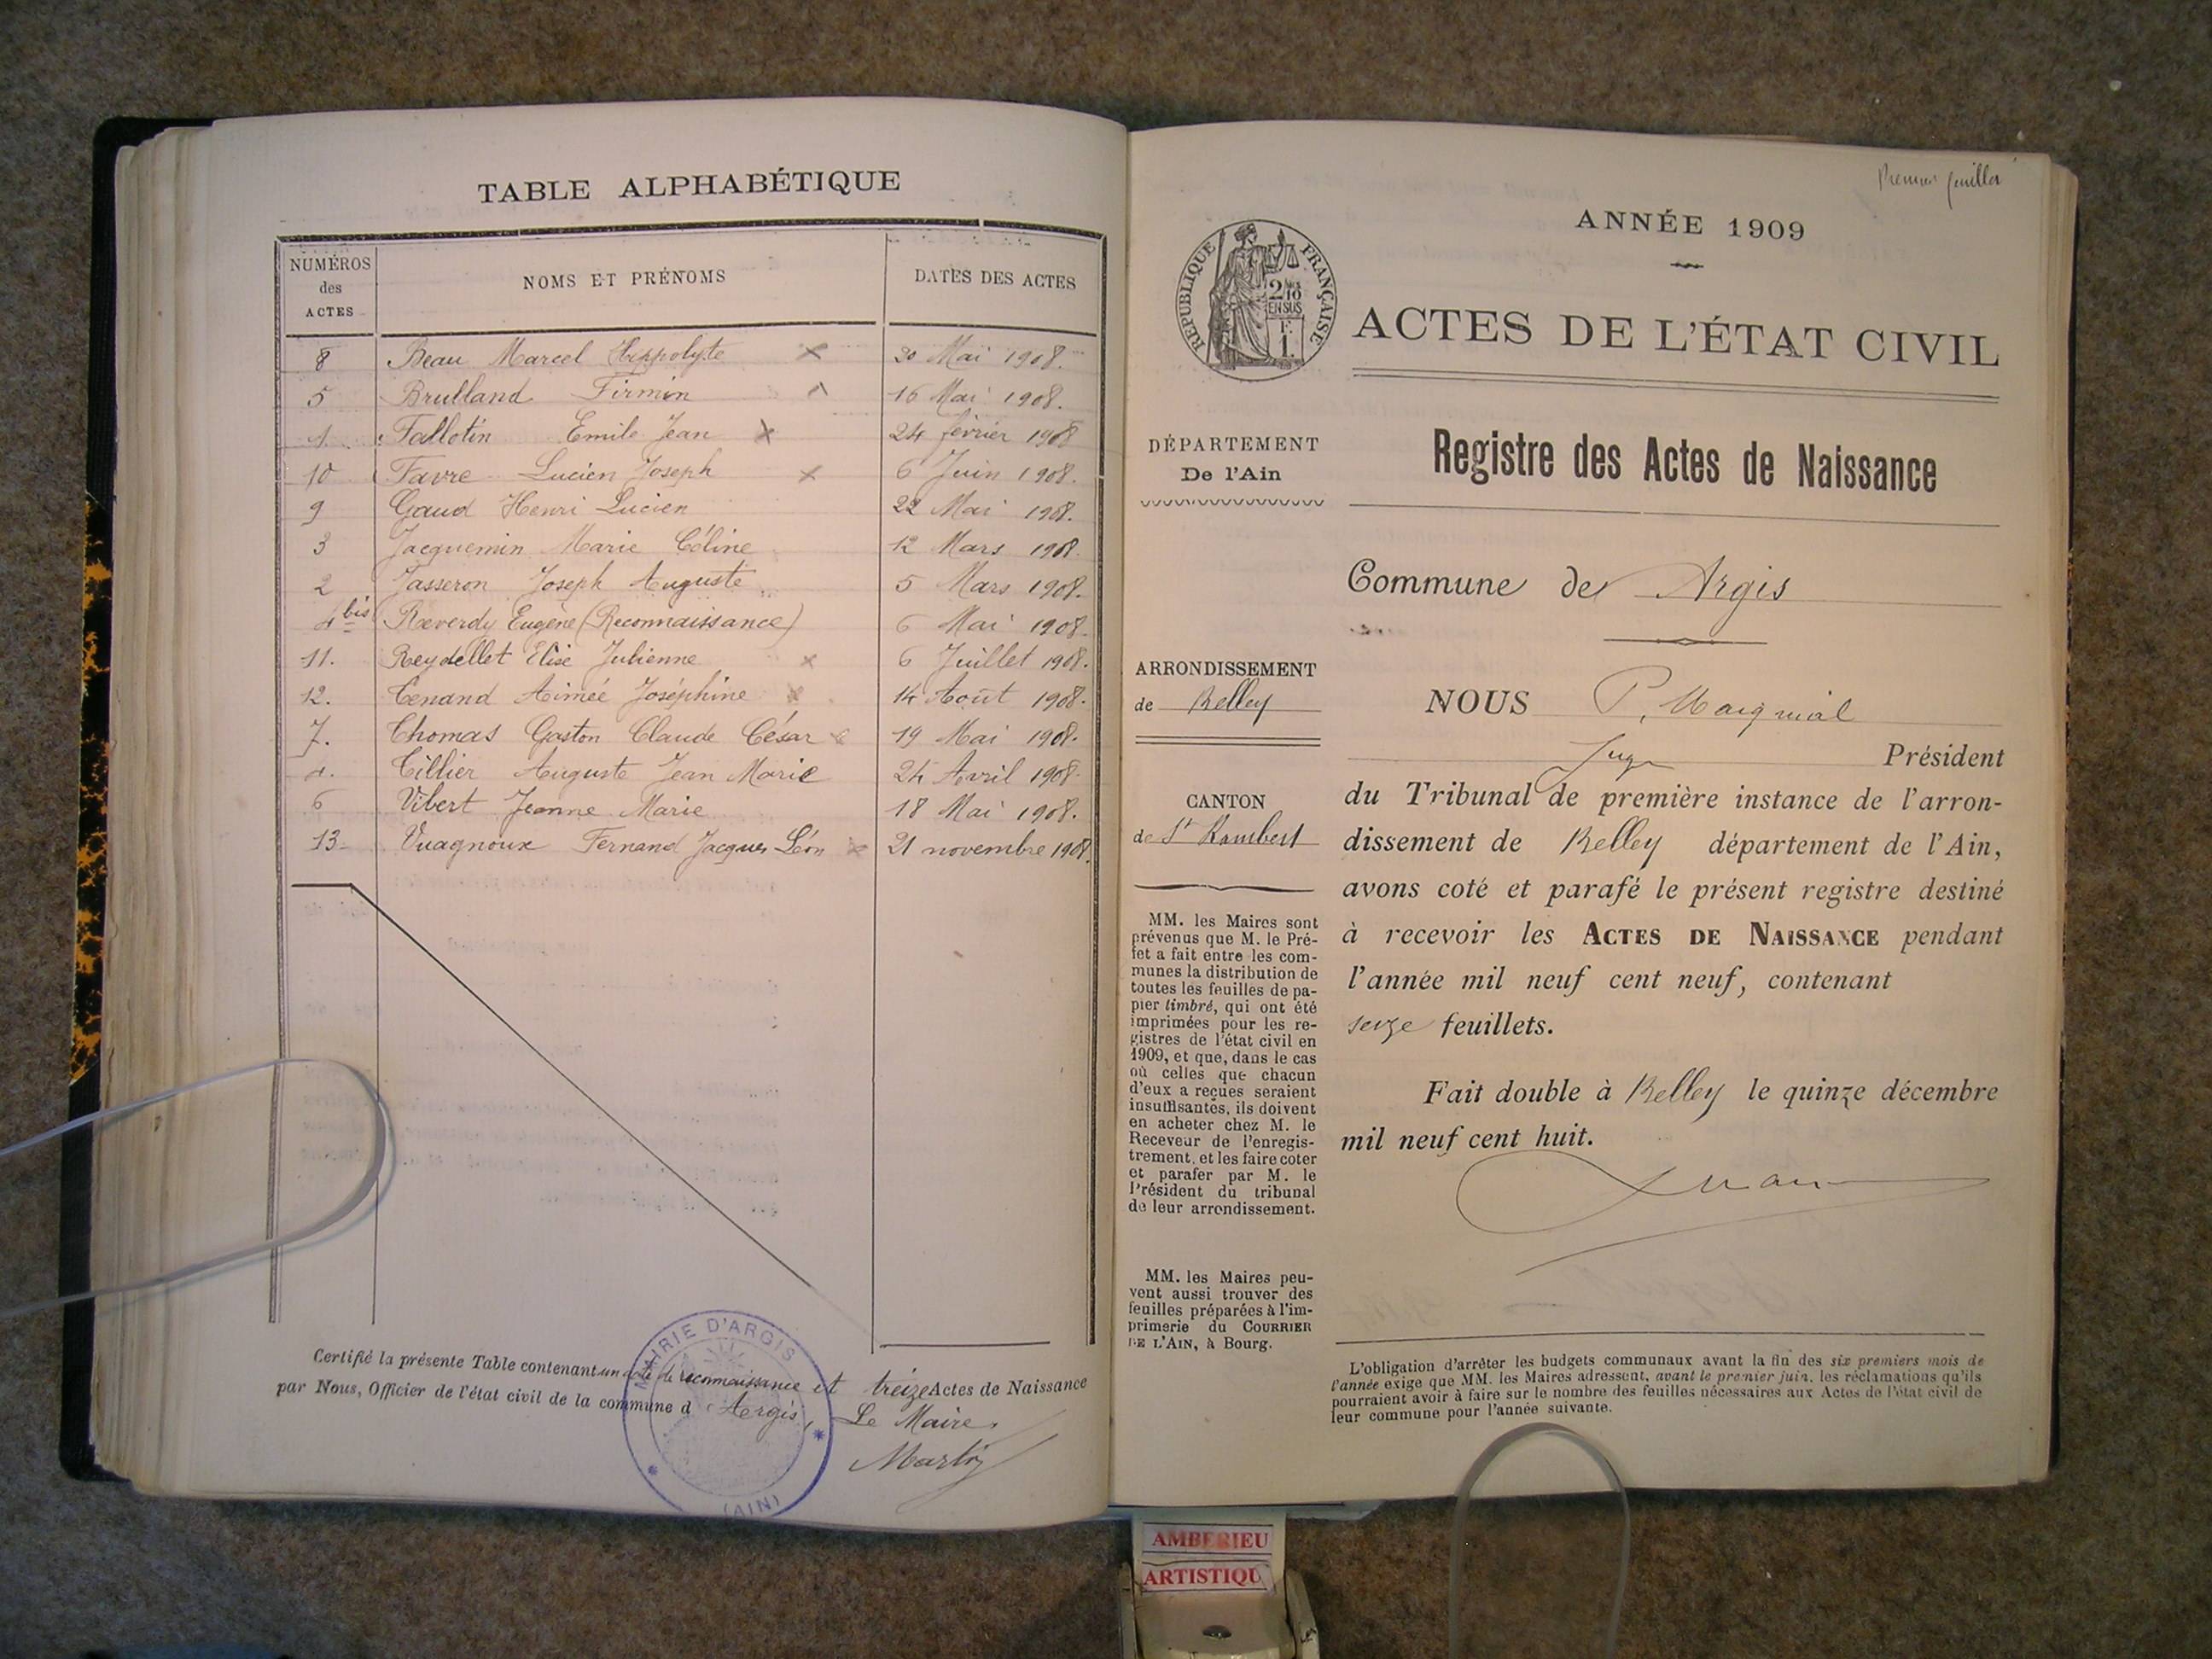 TABLE ALPHABÉTIQUE
NUMÉROS des ACTES
NOMS ET PRÉNOMS
DATES DES ACTES
8 Beau Marcel Hippolyte 20 Mai 1908.
5 Brulland Firmin 16 Mai 1908.
1. Fallotin Emile Jean 24 février 1908
10 Favre Lucien Joseph 6 Juin 1908.
9 Gaud Henri Lucien 22 Mai 1908.
3 Jacquemin Marie Céline 12 Mars 1908.
2 Jasseron Joseph Auguste 5 Mars 1908.
4 bis Reverdy Eugène (Reconnaissance) 6 Mai 1908.
11. Reydellet Elise Julienne 6 Juillet 1908.
12. Tenand Aimée Joséphine 14 Août 1908.
7. Thomas Gaston Claude César 19 Mai 1908.
4. Tillier Auguste Jean Marie 24 Avril 1908.
6 Vibert Jeanne Marie 18 Mai 1908.
13. Vuagnoux Fernand Jacques Léon 21 novembre 1908.
Certifié la présente Table contenant un acte de reconnaissance et treize Actes de Naissance
par Nous, Officier de l'état civil de la commune d'Argis,
Le Maire,
MAIRIE D'ARGIS
(AIN)
Premier feuillet
ANNÉE 1909
REPUBLIQUE FRANÇAISE
2/10 EN SUS
F. 1.
ACTES DE L'ÉTAT CIVIL
DÉPARTEMENT
De l'Ain
Registre des Actes de Naissance
Commune de Argis
ARRONDISSEMENT
de Belley
CANTON
de St Rambert
MM. les Maires sont
prévenus que M. le Pré-
fet a fait entre les com-
munes la distribution de
toutes les feuilles de pa-
pier timbré, qui ont été
imprimées pour les re-
gistres de l'état civil en
1909, et que, dans le cas
où celles que chacun
d'eux a reçues seraient
insuffisantes, ils doivent
en acheter chez M. le
Receveur de l'enregis-
trement, et les faire coter
et parafer par M. le
Président du tribunal
de leur arrondissement.
MM. les Maires peu-
vent aussi trouver des
feuilles préparées à l'im-
primerie du COURRIER
DE L'AIN, à Bourg.
NOUS P.
Juge Président
du Tribunal de première instance de l'arron-
dissement de Belley département de l'Ain,
avons coté et parafé le présent registre destiné
à recevoir les ACTES DE NAISSANCE pendant
l'année mil neuf cent neuf, contenant
seize feuillets.
Fait double à Belley le quinze décembre
mil neuf cent huit.
L'obligation d'arrêter les budgets communaux avant la fin des six premiers mois de
l'année exige que MM. les Maires adressent, avant le premier juin, les réclamations qu'ils
pourraient avoir à faire sur le nombre des feuilles nécessaires aux Actes de l'état civil de
leur commune pour l'année suivante.
AMBERIEU
ARTISTIQU